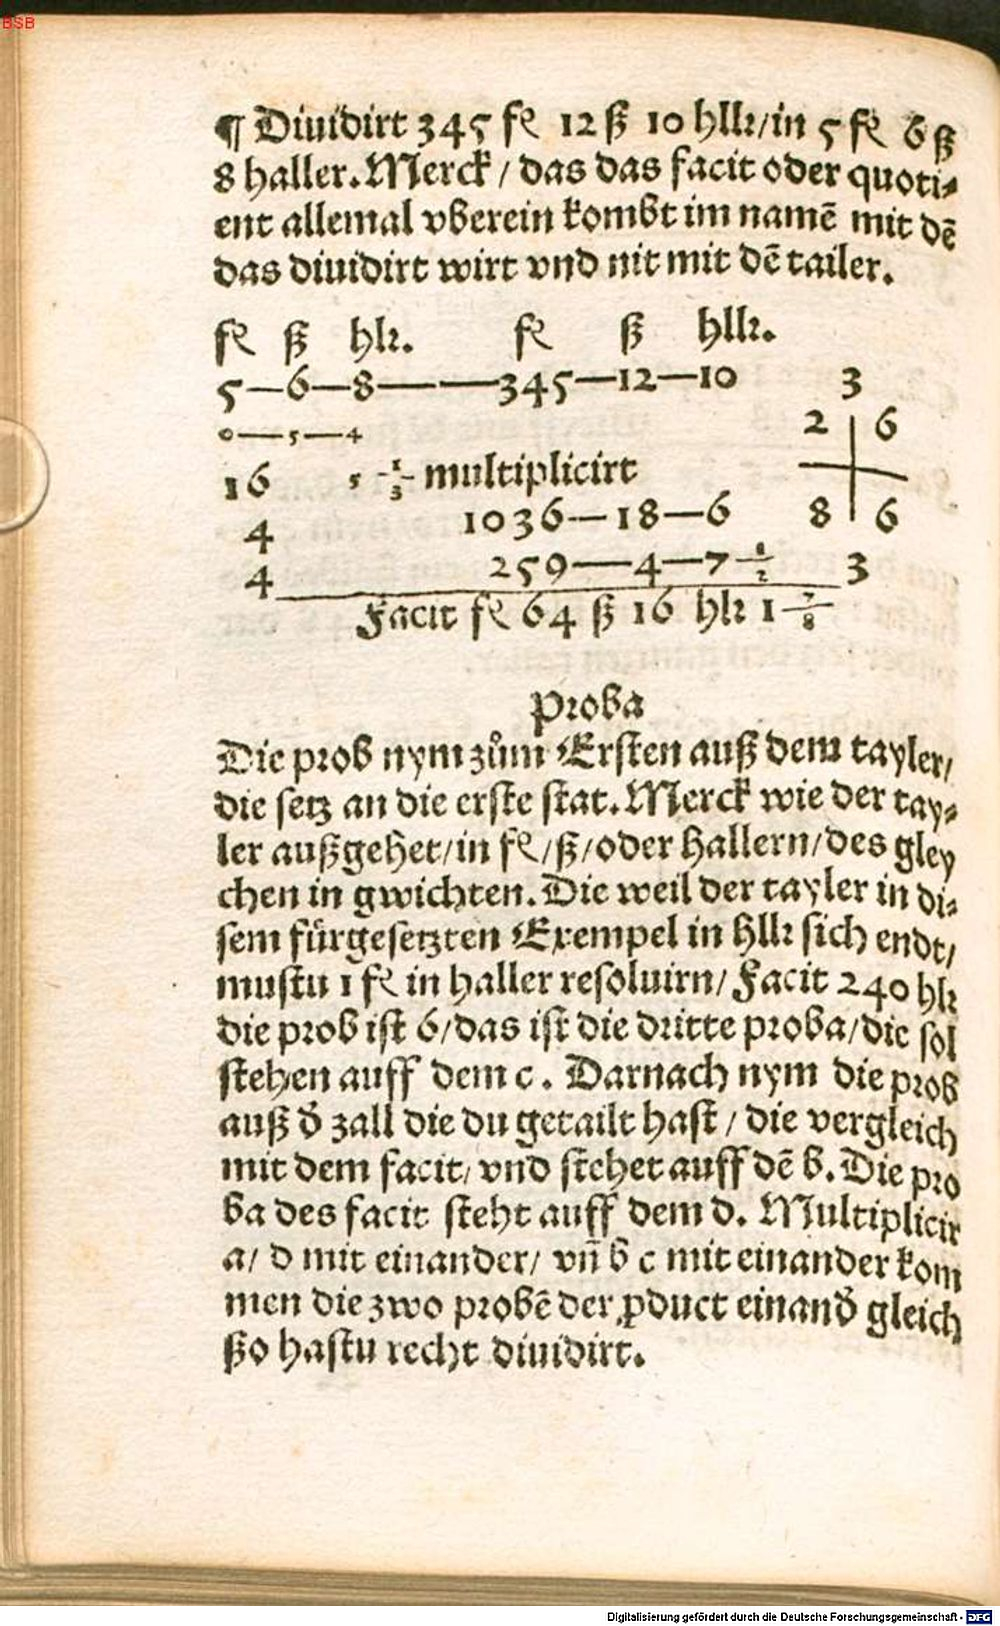 BSB
¶ Diuidirt 345 fl 12 ß 10 hllr/in 5 fl 6 ß
8 haller. Merck / das das facit oder quoti⸗
ent allemal vberein kombt im namē mit dē
das diuidirt wirt vnd nit mit dē tailer.
fl ß hlr. fl ß hllr.
5—6—8———345—12—10 3
0—5—4 2 6
16 5 1/3 multiplicirt
4 1036—18—6 8 6
4 259—4—7 1/2 3
Facit fl 64 ß 16 hlr 1 7/8
Proba
Die prob nym zům Ersten auß dem tayler/
die setz an die erste stat. Merck wie der tay⸗
ler außgehet/in fl/ß/oder hallern/des gley
chen in gwichten. Die weil der tayler in di⸗
sem fürgesetzten Exempel in hllr sich endt/
mustu 1 fl in haller resoluirn/ Facit 240 hlr
die prob ist 6/das ist die dritte proba/die sol
stehen auff dem c. Darnach nym die prob
auß d̄ zall die du getailt hast / die vergleich
mit dem facit/ vnd stehet auff dē b. Die pro
ba des facit steht auff dem d. Multiplicir
a/ d mit einander/ vn̄ b c mit einander kom
men die zwo probē der ꝓduct einand̄ gleich
ßo hastu recht diuidirt.
Digitalisierung gefördert durch die Deutsche Forschungsgemeinschaft - DFG